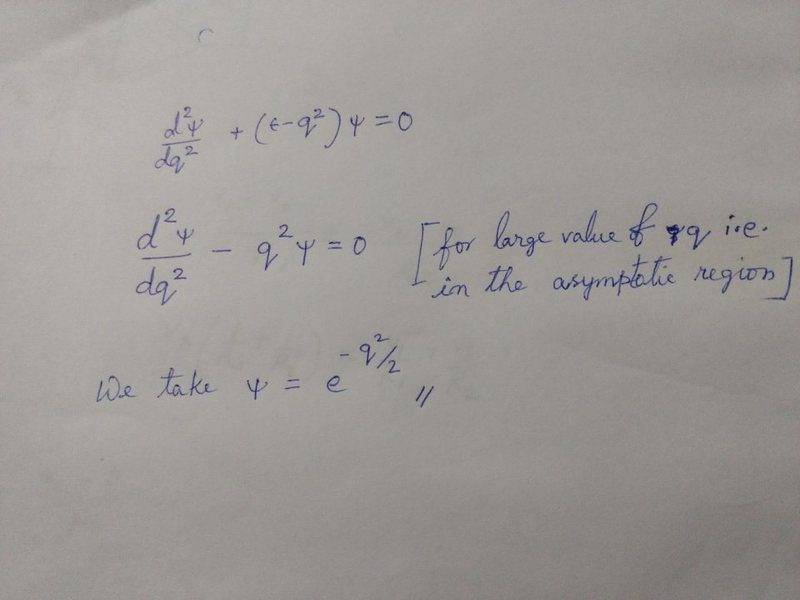 d²ψ/dq² + (ϵ-q²)ψ=0
d²ψ/dq² - q²ψ=0 [for large value of q i.e.
in the asymptotic region]
We take ψ = e^(-q²/2) //